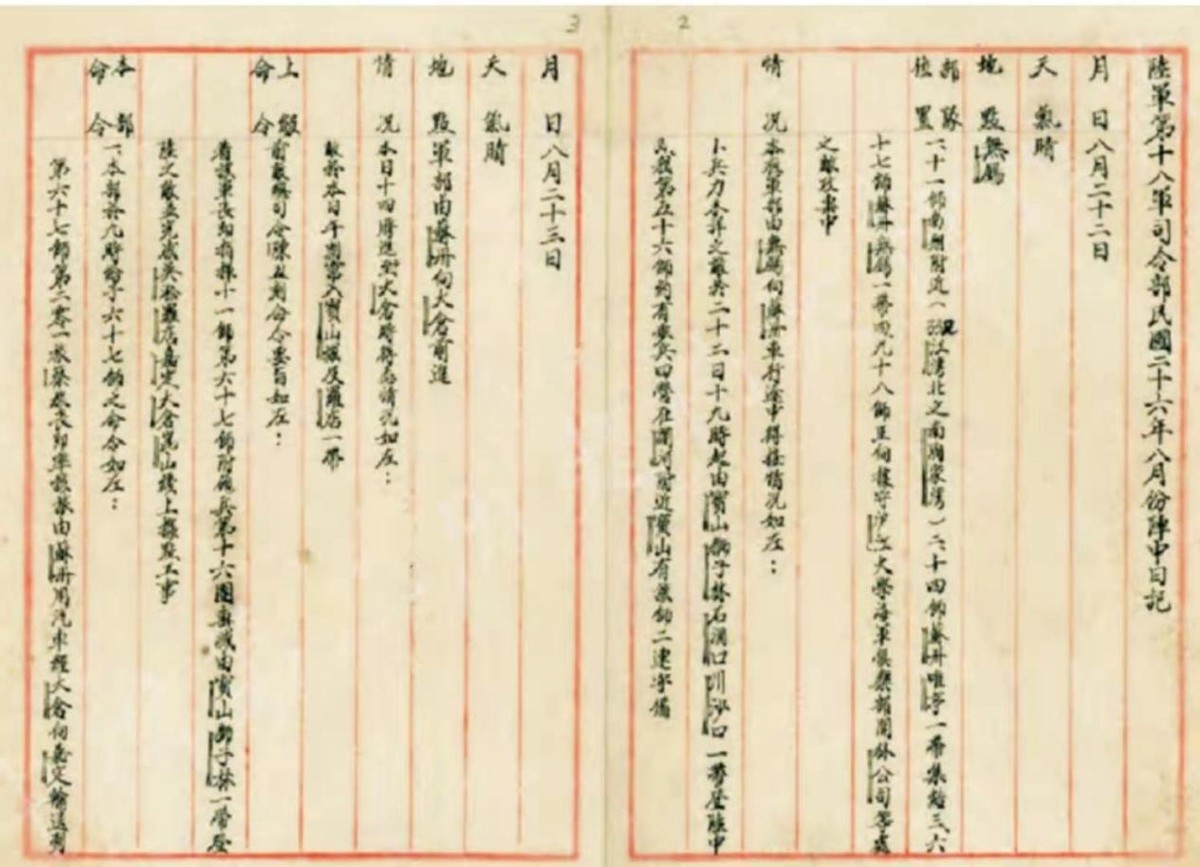 2
陸軍第十八軍司令部民國二十六年八月份陣中日記
月日八月二十二日
天氣晴
地點無錫
部隊位置1、十一師南翔附近(現江灣北之南葫家灣)2、十四師蘇州唯亭一帶集結3、六
十七師蘇州無錫一帶4、九十八師正向據守滬江大學海軍俱樂部公司等處
之敵攻擊中
情況本夜軍部由無錫向蘇州車行途中得接情況如左:
1、兵力不詳之敵於二十二日十九時起由寶山獅子林石洞口川沙口一帶登陸中
2、我第五十六師約有步兵四營在瀏河附近寶山有該師二連守備
3
月日八月二十三日
天氣晴
地點軍部由蘇州向太倉前進
情況本日十四時進至太倉時得悉情況如左:
敵於本日午刻突入寶山城及羅店一帶
上級命令前敵總司令陳五刻命令要旨如左:
着該軍長即指揮十一師第六十七師附砲兵第十六團殲滅由寶山獅子林一帶登
陸之敵並完成吳淞羅店嘉定太倉崑山線上據點工事
本部命令1、本部於九時給予六十七師之命令如左:
第六十七師第二零一旅蔡旅長即率該旅由蘇州用汽車經太倉向嘉定輸送到